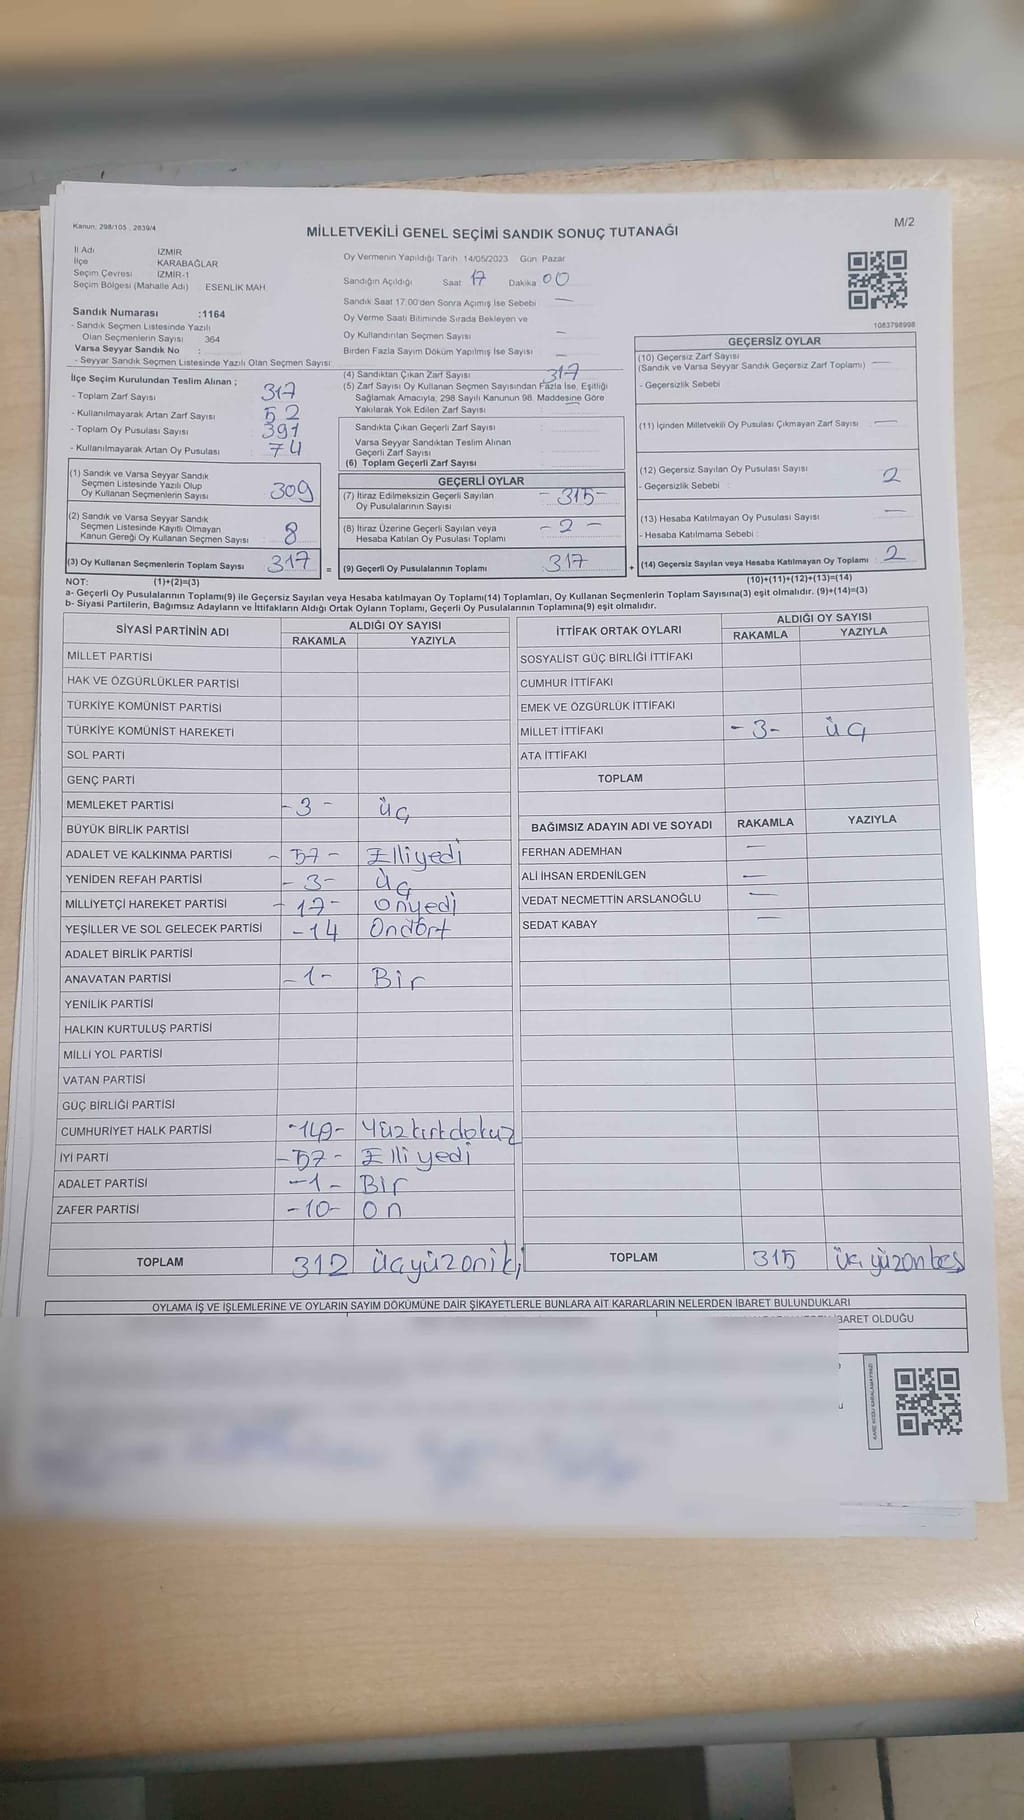 Kanun: 298/105 , 2839/4
MİLLETVEKİLİ GENEL SEÇİMİ SANDIK SONUÇ TUTANAĞI
M/2
İl Adı İZMİR
İlçe KARABAĞLAR
Seçim Çevresi İZMİR-1
Seçim Bölgesi (Mahalle Adı) ESENLİK MAH.
Sandık Numarası :1164
- Sandık Seçmen Listesinde Yazılı
Olan Seçmenlerin Sayısı 364
Varsa Seyyar Sandık No :
- Seyyar Sandık Seçmen Listesinde Yazılı Olan Seçmen Sayısı:
Oy Vermenin Yapıldığı Tarih 14/05/2023 Gün Pazar
Sandığın Açıldığı Saat 17 Dakika 00
Sandık Saat 17:00'den Sonra Açımış İse Sebebi —
Oy Verme Saati Bitiminde Sırada Bekleyen ve
Oy Kullandırılan Seçmen Sayısı —
Birden Fazla Sayım Döküm Yapılmış İse Sayısı —
1083798998
İlçe Seçim Kurulundan Teslim Alınan ;
- Toplam Zarf Sayısı 317
- Kullanılmayarak Artan Zarf Sayısı 52
- Toplam Oy Pusulası Sayısı 391
- Kullanılmayarak Artan Oy Pusulası 74
(1) Sandık ve Varsa Seyyar Sandık
Seçmen Listesinde Yazılı Olup
Oy Kullanan Seçmenlerin Sayısı 309
(2) Sandık ve Varsa Seyyar Sandık
Seçmen Listesinde Kayıtlı Olmayan
Kanun Gereği Oy Kullanan Seçmen Sayısı 8
(3) Oy Kullanan Seçmenlerin Toplam Sayısı 317
(4) Sandıktan Çıkan Zarf Sayısı 317
(5) Zarf Sayısı Oy Kullanan Seçmen Sayısından Fazla İse, Eşitliği
Sağlamak Amacıyla, 298 Sayılı Kanunun 98. Maddesine Göre
Yakılarak Yok Edilen Zarf Sayısı
Sandıkta Çıkan Geçerli Zarf Sayısı
Varsa Seyyar Sandıktan Teslim Alınan
Geçerli Zarf Sayısı
(6) Toplam Geçerli Zarf Sayısı
GEÇERLİ OYLAR
(7) İtiraz Edilmeksizin Geçerli Sayılan
Oy Pusulalarının Sayısı -315-
(8) İtiraz Üzerine Geçerli Sayılan veya
Hesaba Katılan Oy Pusulası Toplamı -2-
= (9) Geçerli Oy Pusulalarının Toplamı 317 +
GEÇERSİZ OYLAR
(10) Geçersiz Zarf Sayısı
(Sandık ve Varsa Seyyar Sandık Geçersiz Zarf Toplamı) —
- Geçersizlik Sebebi :
(11) İçinden Milletvekili Oy Pusulası Çıkmayan Zarf Sayısı —
(12) Geçersiz Sayılan Oy Pusulası Sayısı 2
- Geçersizlik Sebebi :
(13) Hesaba Katılmayan Oy Pusulası Sayısı —
- Hesaba Katılmama Sebebi :
(14) Geçersiz Sayılan veya Hesaba Katılmayan Oy Toplamı 2
NOT: (1)+(2)=(3) (10)+(11)+(12)+(13)=(14)
a- Geçerli Oy Pusulalarının Toplamı(9) ile Geçersiz Sayılan veya Hesaba katılmayan Oy Toplamı(14) Toplamları, Oy Kullanan Seçmenlerin Toplam Sayısına(3) eşit olmalıdır. (9)+(14)=(3)
b- Siyasi Partilerin, Bağımsız Adayların ve İttifakların Aldığı Ortak Oyların Toplamı, Geçerli Oy Pusulalarının Toplamına(9) eşit olmalıdır.
SİYASİ PARTİNİN ADI ALDIĞI OY SAYISI
RAKAMLA YAZIYLA
MİLLET PARTİSİ
HAK VE ÖZGÜRLÜKLER PARTİSİ
TÜRKİYE KOMÜNİST PARTİSİ
TÜRKİYE KOMÜNİST HAREKETİ
SOL PARTİ
GENÇ PARTİ
MEMLEKET PARTİSİ -3- üç
BÜYÜK BİRLİK PARTİSİ
ADALET VE KALKINMA PARTİSİ -57- Elliyedi
YENİDEN REFAH PARTİSİ -3- üç
MİLLİYETÇİ HAREKET PARTİSİ -17- onyedi
YEŞİLLER VE SOL GELECEK PARTİSİ -14 Ondört
ADALET BİRLİK PARTİSİ
ANAVATAN PARTİSİ -1- Bir
YENİLİK PARTİSİ
HALKIN KURTULUŞ PARTİSİ
MİLLİ YOL PARTİSİ
VATAN PARTİSİ
GÜÇ BİRLİĞİ PARTİSİ
CUMHURİYET HALK PARTİSİ -149- Yüzkırtdokuz
İYİ PARTİ -57- Elli yedi
ADALET PARTİSİ -1- Bir
ZAFER PARTİSİ -10- on
TOPLAM 312 üçyüzoniki
İTTİFAK ORTAK OYLARI ALDIĞI OY SAYISI
RAKAMLA YAZIYLA
SOSYALİST GÜÇ BİRLİĞİ İTTİFAKI
CUMHUR İTTİFAKI
EMEK VE ÖZGÜRLÜK İTTİFAKI
MİLLET İTTİFAKI -3- üç
ATA İTTİFAKI
TOPLAM
BAĞIMSIZ ADAYIN ADI VE SOYADI RAKAMLA YAZIYLA
FERHAN ADEMHAN —
ALİ İHSAN ERDENİLGEN —
VEDAT NECMETTİN ARSLANOĞLU —
SEDAT KABAY —
TOPLAM 315 üçyüzonbeş
OYLAMA İŞ VE İŞLEMLERİNE VE OYLARIN SAYIM DÖKÜMÜNE DAİR ŞİKAYETLERLE BUNLARA AİT KARARLARIN NELERDEN İBARET BULUNDUKLARI
İBARET OLDUĞU